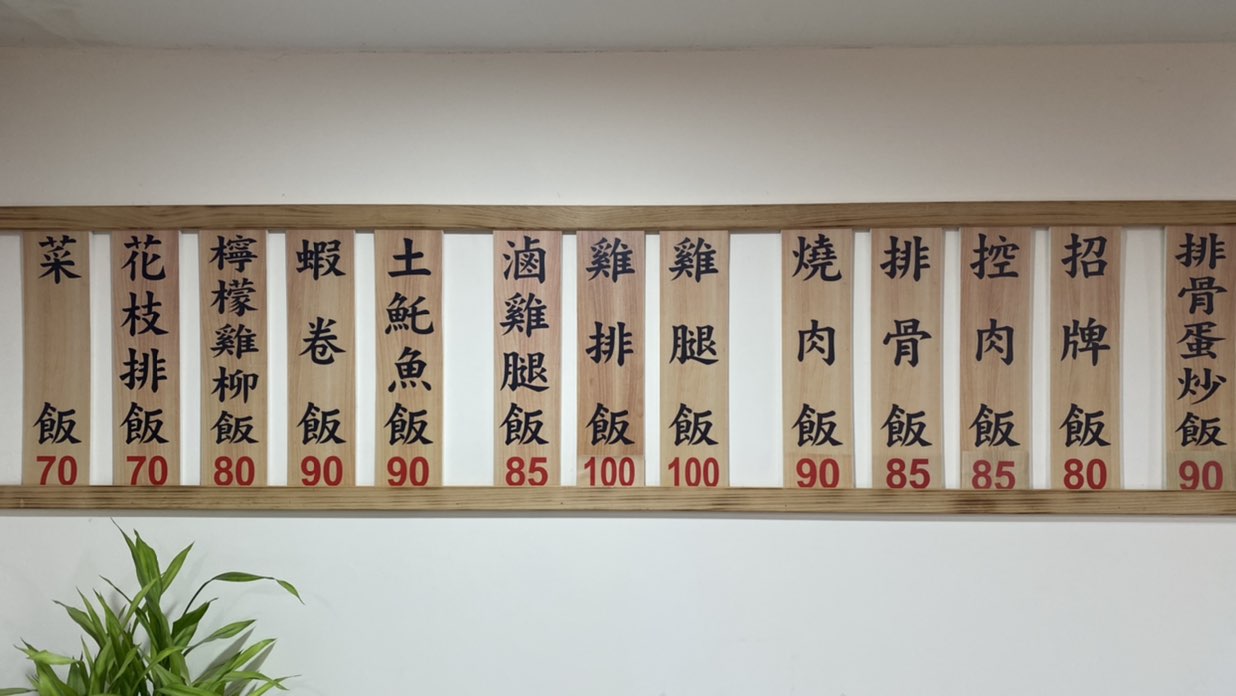 排骨蛋炒飯 90
招牌飯 80
控肉飯 85
排骨飯 85
燒肉飯 90
雞腿飯 100
雞排飯 100
滷雞腿飯 85
土魠魚飯 90
蝦卷飯 90
檸檬雞柳飯 80
花枝排飯 70
菜飯 70